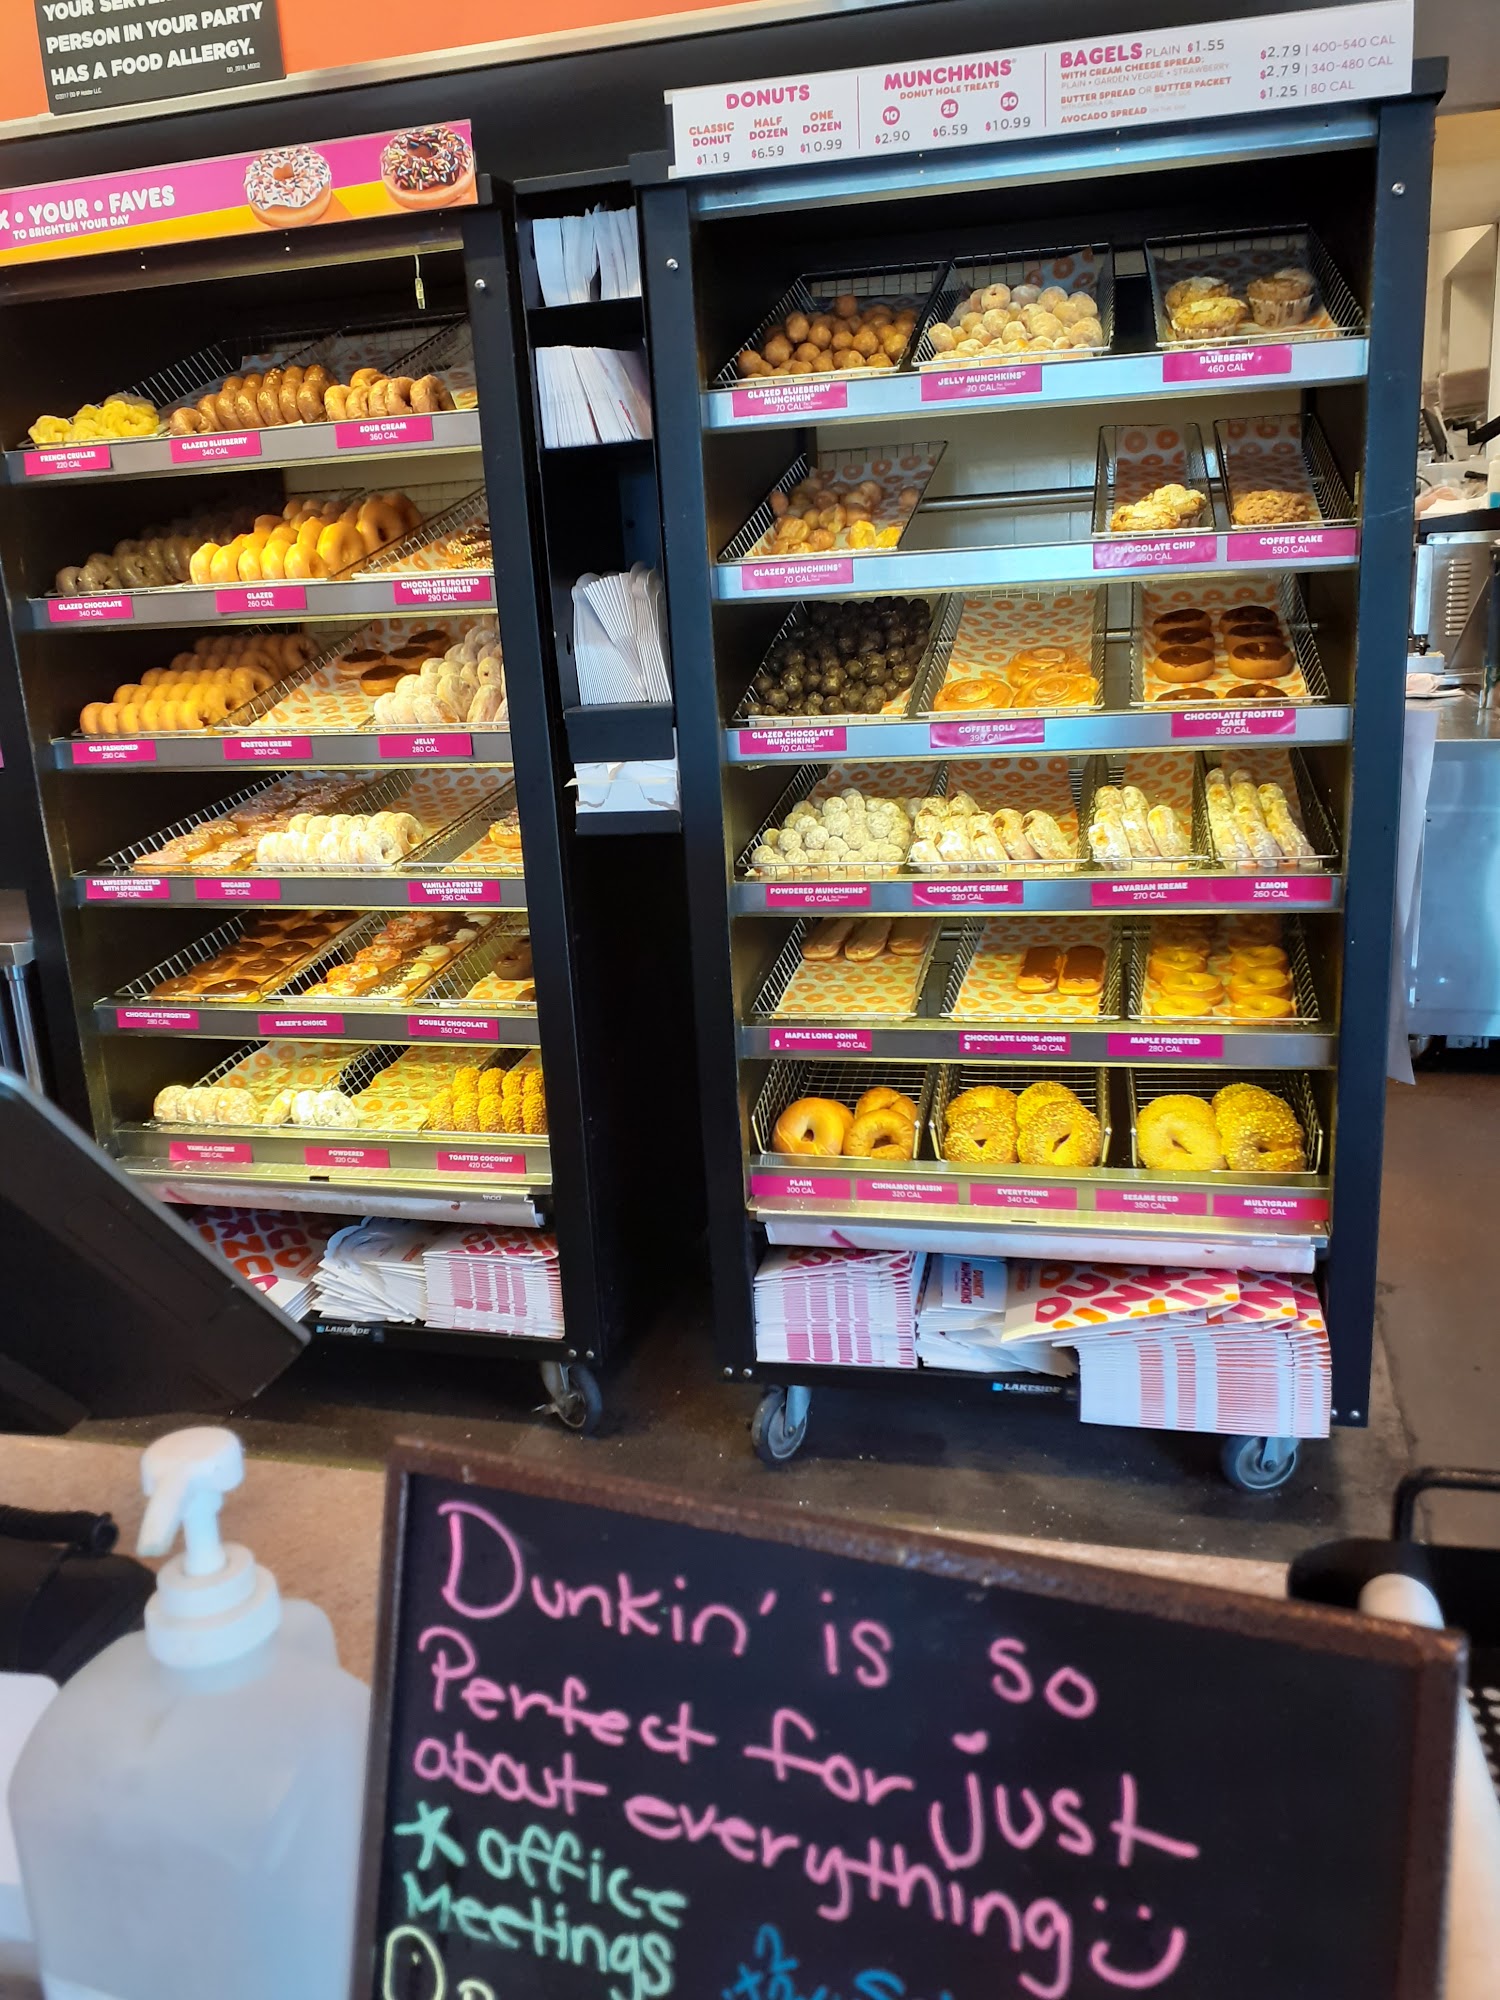 YOUR SERVER
PERSON IN YOUR PARTY
HAS A FOOD ALLERGY.
• YOUR • FAVES
TO BRIGHTEN YOUR DAY
DONUTS
CLASSIC DONUT $1.19
HALF DOZEN $6.59
ONE DOZEN $10.99
MUNCHKINS®
DONUT HOLE TREATS
10 $2.90
25 $6.59
50 $10.99
BAGELS PLAIN $1.55
WITH CREAM CHEESE SPREAD:
PLAIN • GARDEN VEGGIE • STRAWBERRY
$2.79 | 400-540 CAL
BUTTER SPREAD OR BUTTER PACKET
$2.79 | 340-480 CAL
AVOCADO SPREAD
$1.25 | 80 CAL
FRENCH CRULLER
220 CAL
GLAZED BLUEBERRY
340 CAL
SOUR CREAM
360 CAL
GLAZED CHOCOLATE
340 CAL
GLAZED
260 CAL
CHOCOLATE FROSTED
WITH SPRINKLES
290 CAL
OLD FASHIONED
290 CAL
BOSTON KREME
300 CAL
JELLY
280 CAL
STRAWBERRY FROSTED
WITH SPRINKLES
290 CAL
SUGARED
230 CAL
VANILLA FROSTED
WITH SPRINKLES
290 CAL
CHOCOLATE FROSTED
280 CAL
BAKER'S CHOICE
DOUBLE CHOCOLATE
350 CAL
VANILLA CREME
POWDERED
320 CAL
TOASTED COCONUT
420 CAL
GLAZED BLUEBERRY
MUNCHKIN®
70 CAL
JELLY MUNCHKINS®
70 CAL
BLUEBERRY
460 CAL
GLAZED MUNCHKINS®
70 CAL
CHOCOLATE CHIP
550 CAL
COFFEE CAKE
590 CAL
GLAZED CHOCOLATE
MUNCHKINS®
70 CAL
COFFEE ROLL
390 CAL
CHOCOLATE FROSTED
CAKE
350 CAL
POWDERED MUNCHKINS®
60 CAL
CHOCOLATE CREME
320 CAL
BAVARIAN KREME
270 CAL
LEMON
260 CAL
MAPLE LONG JOHN
$ 340 CAL
CHOCOLATE LONG JOHN
$ 340 CAL
MAPLE FROSTED
280 CAL
PLAIN
300 CAL
CINNAMON RAISIN
320 CAL
EVERYTHING
340 CAL
SESAME SEED
350 CAL
MULTIGRAIN
380 CAL
LAKESIDE
DUNKIN'
MUNCHKINS
LAKESIDE
Dunkin' is so
Perfect for just
about everything
* office
Meetings